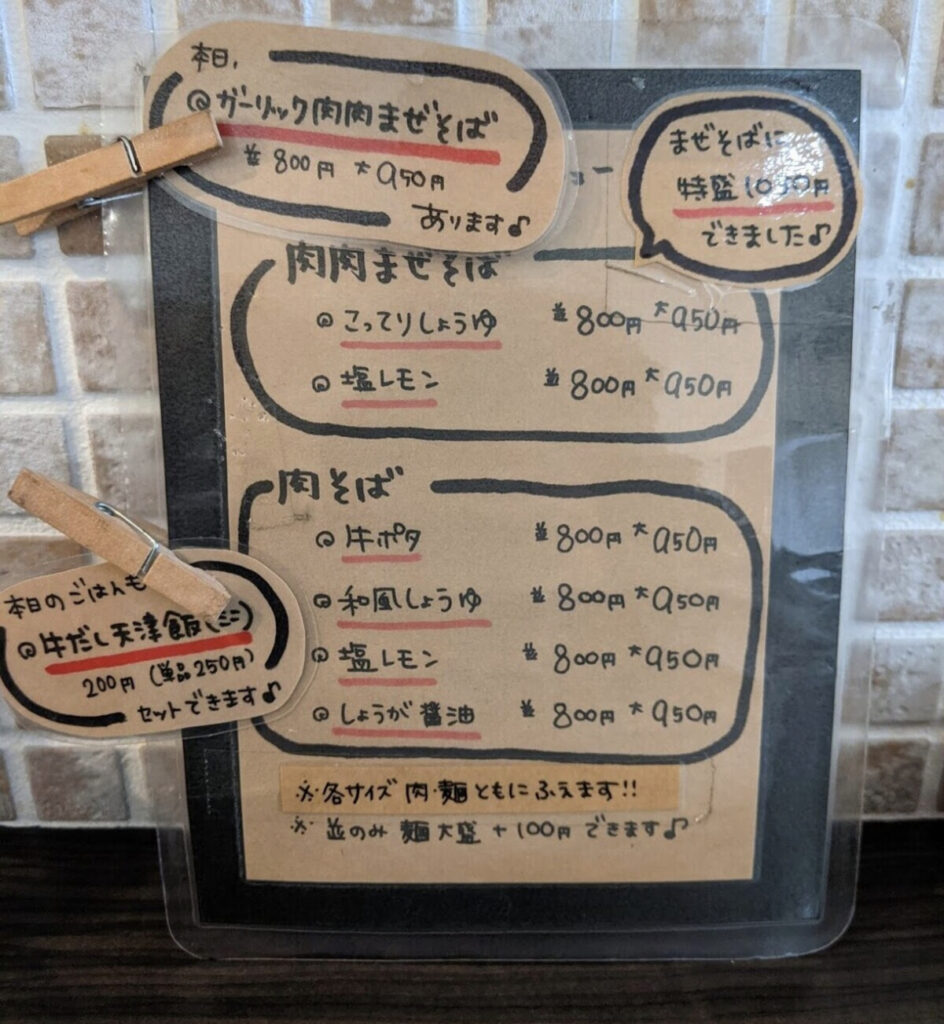 本日、
◎ガーリック肉肉まぜそば
並800円 大950円
あります♪
ュー
まぜそばに
特盛1050円
できました♪
肉肉まぜそば
◎こってりしょうゆ 並800円 大950円
◎塩レモン 並800円 大950円
肉そば
◎牛ポタ 並800円 大950円
◎和風しょうゆ 並800円 大950円
◎塩レモン 並800円 大950円
◎しょうが醤油 並800円 大950円
本日のごはんも
◎牛だし天津飯(ミニ)
200円 (単品250円)
セットできます♪
※各サイズ 肉・麺ともにふえます!!
※並のみ 麺大盛+100円できます♪